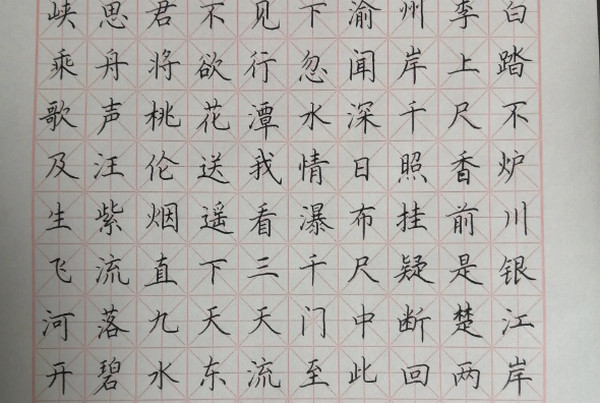 峡思君不见下渝州李白
乘舟将欲行忽闻岸上踏
歌声桃花潭水深千尺不
及汪伦送我情日照香炉
生紫烟遥看瀑布挂前川
飞流直下三千尺疑是银
河落九天天门中断楚江
开碧水东流至此回两岸